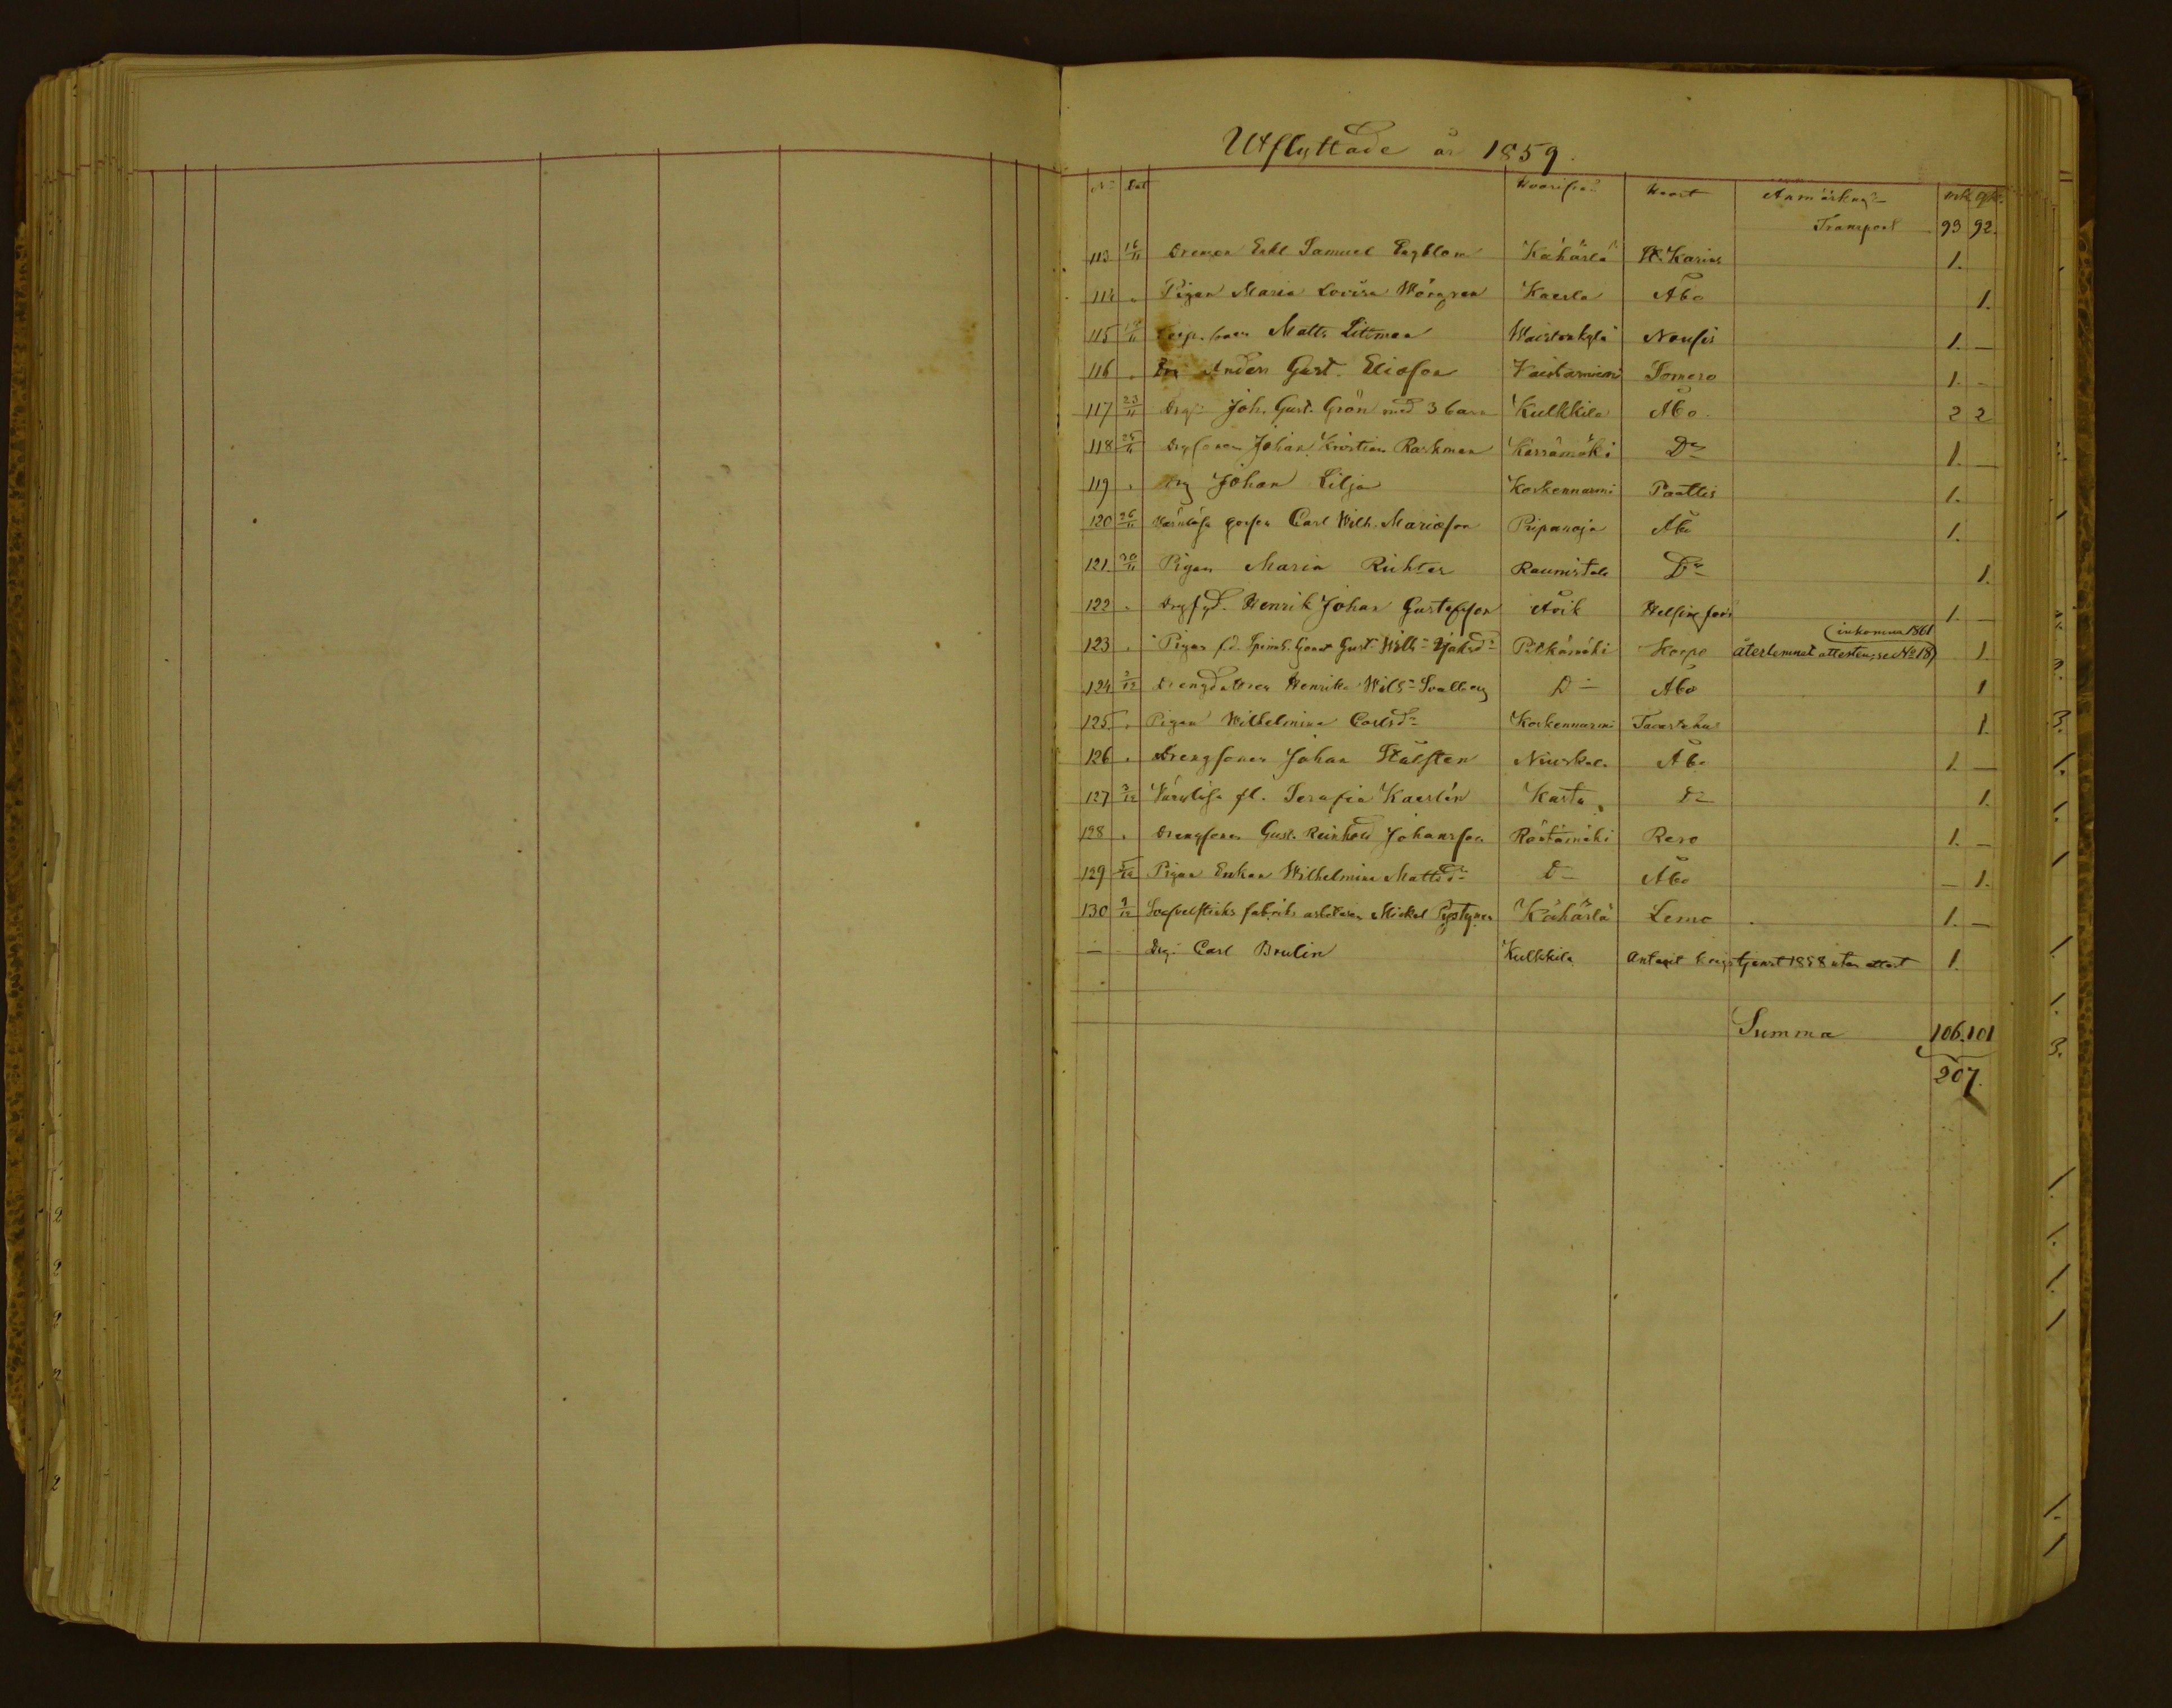 Utflyttade år 1859.
No Dat Hvarifrån Hvart Anmärkng mk. qk.
Transport 93 92.
113 16/11 Drengen Eskl Samuel Engblom Kähärlä St. Karins 1.
114 Pigan Maria Lovisa Wörgren Kaerla Åbo 1.
115 Matts Littman Waistenkylä Nousis 1. —
116 Anders Gust. Eliasson Vaistarniemi Somero 1. -
117 23/11 Drg: Joh. Gust. Grön med 3 barn Kulkkila Åbo. 2 2
118 25/11 Drgsonen Johan Kristian Rask­man Kärrämäki Do 1. —
119 Drg Johan Lilja Koskennurmi Paattis 1.
120 26/11 gossen Carl Wilh. Mariasson Pripanoja Åbo 1.
121. 30/11 Pigan Maria Richter Raunistula Do 1.
122 Henrik Johan Gustafsson Avik Helsingfors 1. —
(inkommen 1861
123 Pigan Gust. Wilh:na Pitkämäki Korpo återlemnat attesten, se No 18) 1.
124 2/12 Drengdottren Henrika Wilh:na Svallberg Do Åbo 1
125. Pigan Wilhelmina Carlsdr Koskennurmi Tavastehus 1.
126 Drengsonen Johan Stålsten Niuskala Åbo 1. —
127 3/12 Värnlösa fl. Serafia Kaerlén Kasta Do 1.
128 Drengsonen Gust. Reinhold Johansson Räntämäki Reso 1. —
129 5/12 Pigan Enkan Wilhelmina Mattsdr Do Åbo — 1.
130 9/12 Svafvelsticks fabriks arbetaren Mickel Pystynen Kähärlä Lemo 1. —
— Drg. Carl Brulin Kulkkila Antagit krigstjenst 1858 utan attest 1.
Summa 106. 101
207.